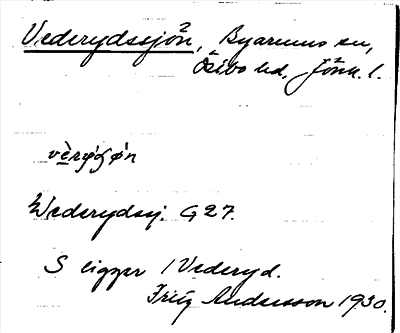 Vederydssjön, Byarums sn,
Östbo hd, Jönk. l.
Wederydssj. G 27.
S ligger i Vederyd.
Fritz Andersson 1930.